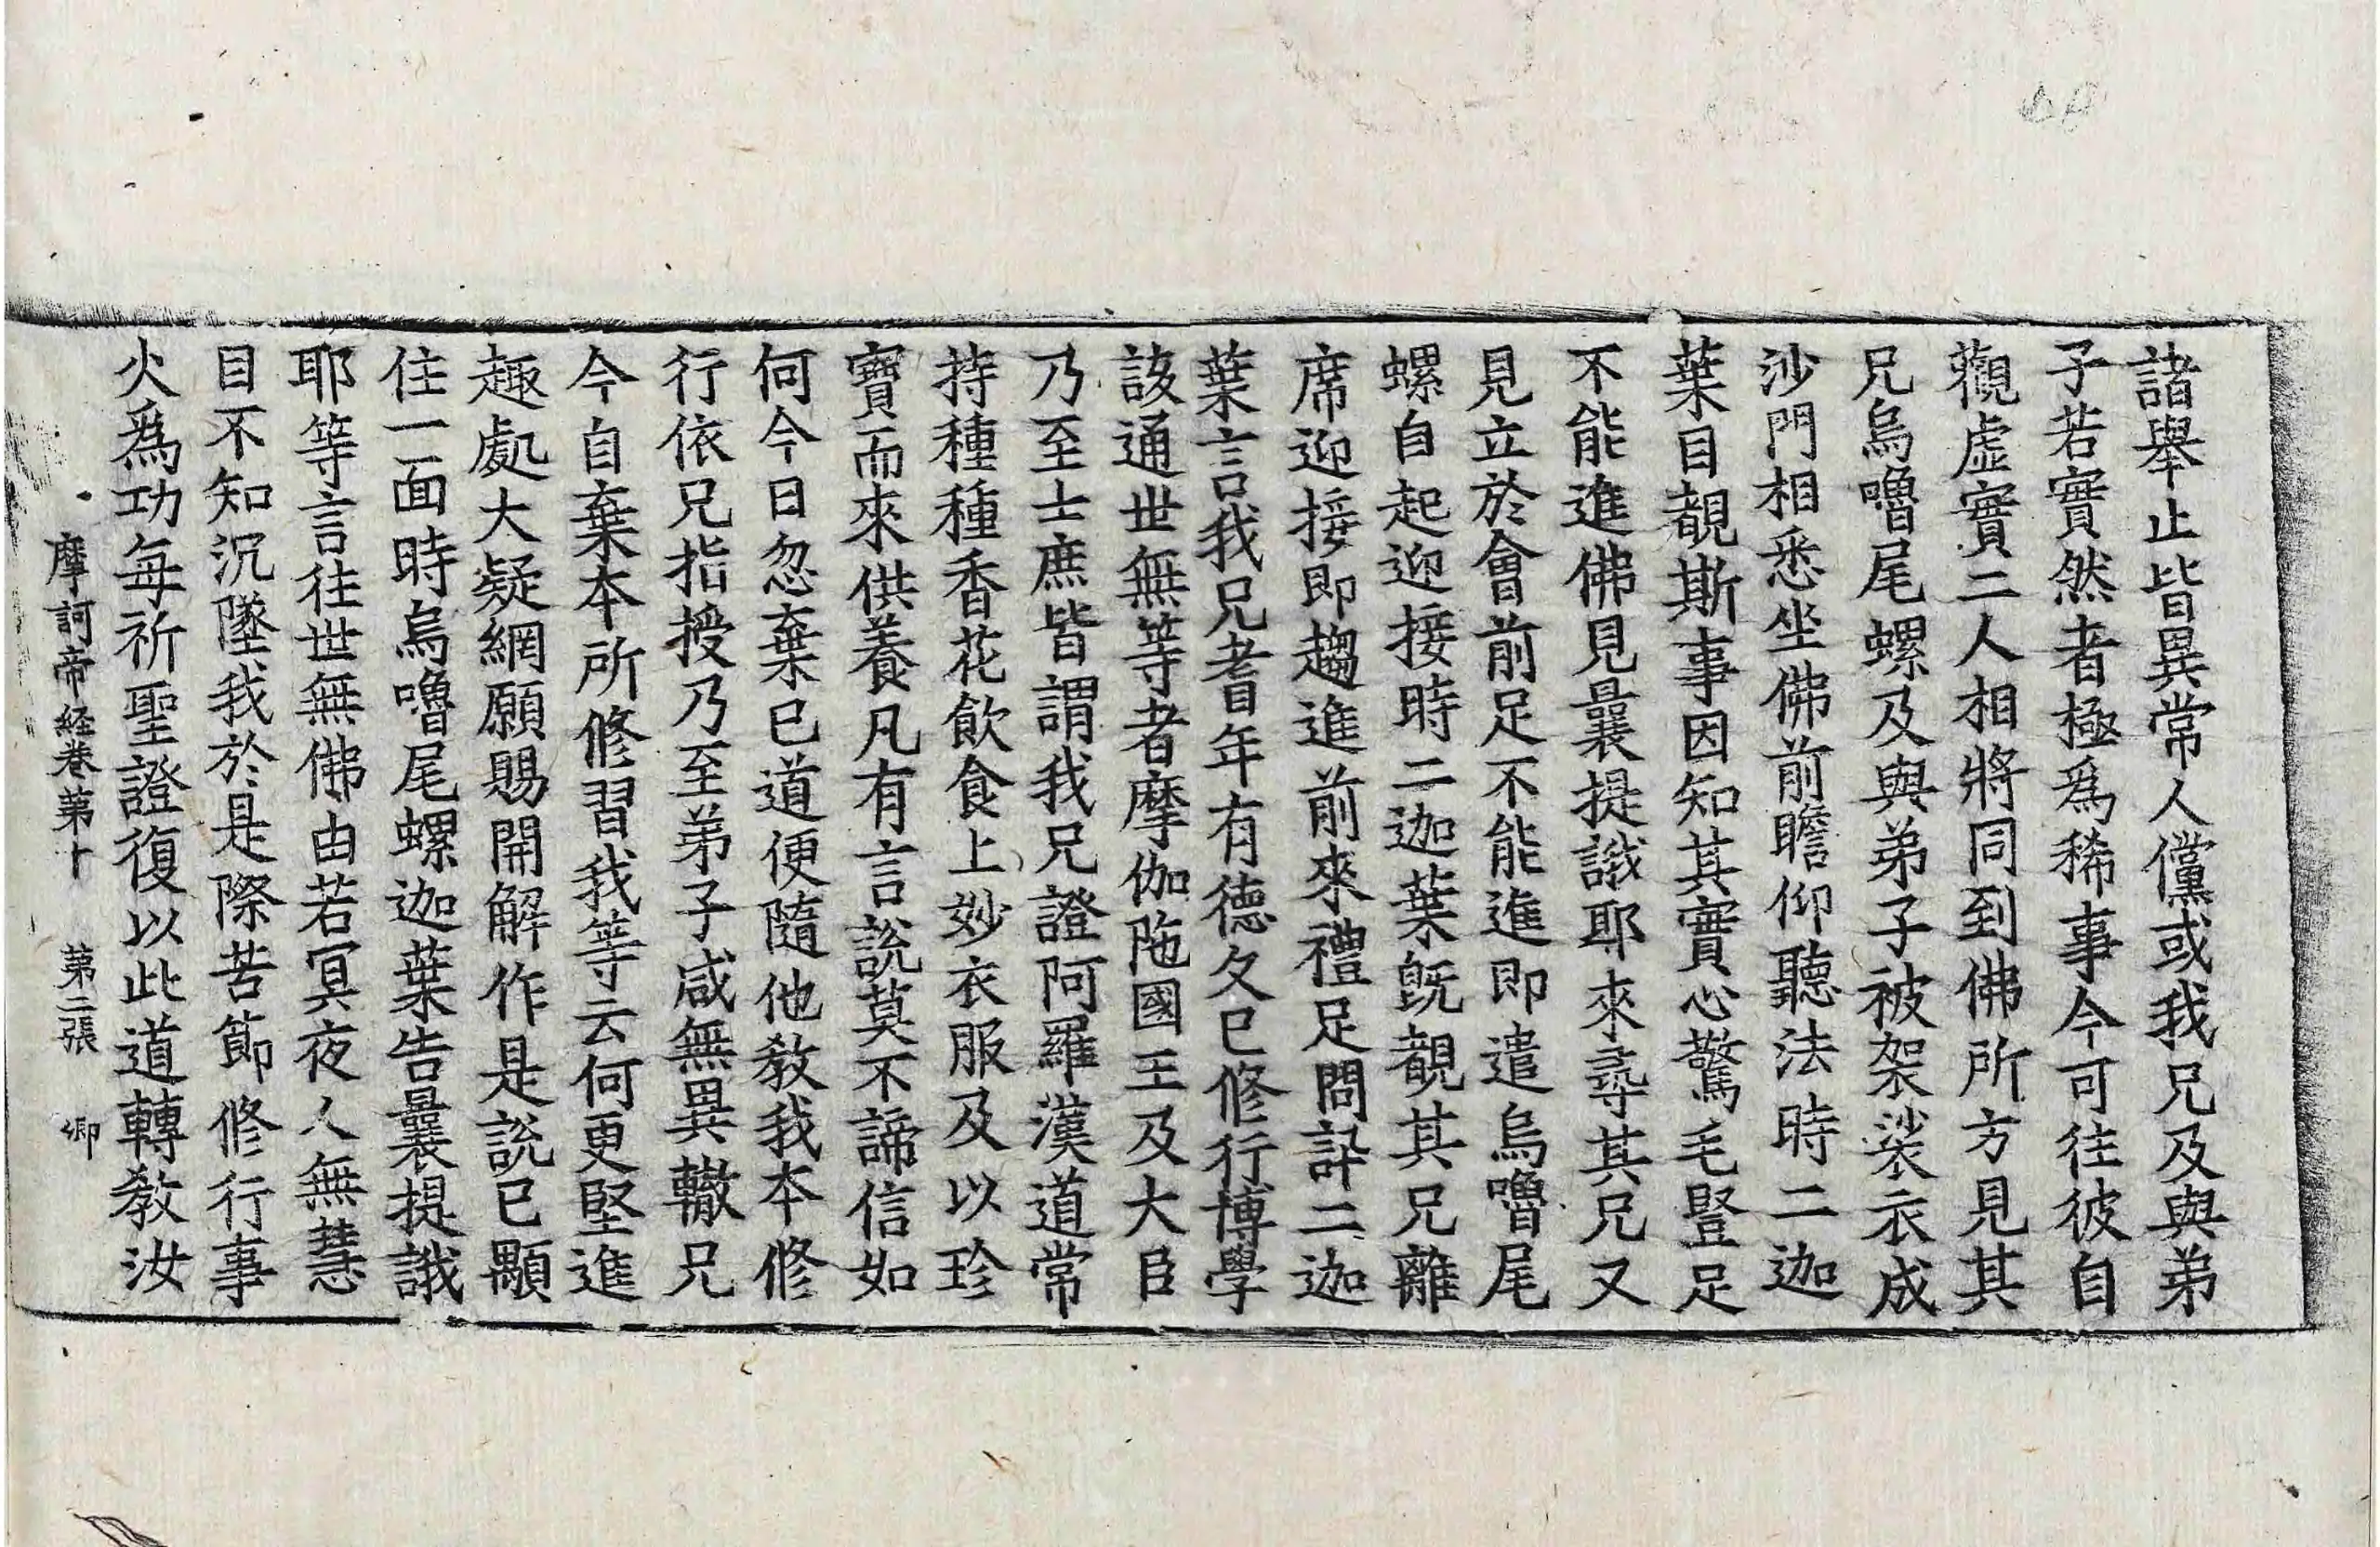 諸舉止皆異常人儻或我兄及與弟
子若實然者極爲稀事今可往彼自
觀虛實二人相將同到佛所方見其
兄烏嚕尾螺及與弟子被袈裟衣成
沙門相悉坐佛前瞻仰聽法時二迦
葉目覩斯事因知其實心驚毛竪足
不能進佛見曩提誐耶來尋其兄又
見立於會前足不能進即遣烏嚕尾
螺自起迎接時二迦葉旣覩其兄離
席迎接即趨進前來禮足問訊二迦
葉言我兄耆年有德久已修行博學
該通世無等者摩伽陁國王及大臣
乃至士庶皆謂我兄證阿羅漢道常
持種種香花飲食上妙衣服及以珍
寶而來供養凡有言說莫不諦信如
何今日忽棄已道便隨他敎我本修
行依兄指授乃至弟子咸無異轍兄
今自棄本所修習我等云何更堅進
趣處大疑網願賜開解作是說已顒
住一面時烏嚕尾螺迦葉告曩提誐
耶等言往世無佛由若冥夜人無慧
目不知沉墜我於是際苦節修行事
火爲功每祈聖證復以此道轉敎汝
摩訶帝経卷第十 第二張 卿